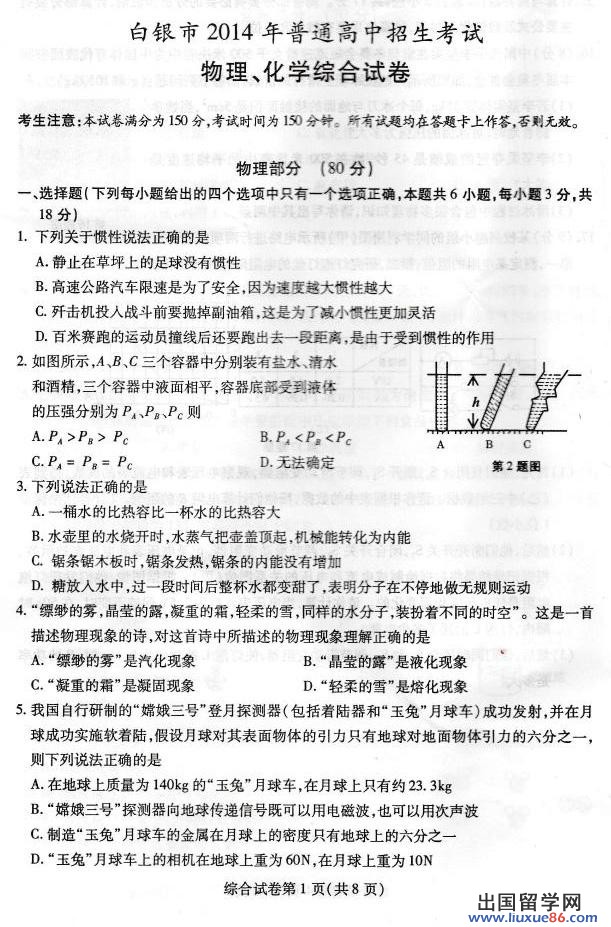 白银市2014年普通高中招生考试
物理、化学综合试卷
考生注意:本试卷满分为150分,考试时间为150分钟。所有试题均在答题卡上作答,否则无效。
物理部分 (80分)
一、选择题(下列每小题给出的四个选项中只有一个选项正确,本题共6小题,每小题3分,共
18分)
1. 下列关于惯性说法正确的是
A. 静止在草坪上的足球没有惯性
B. 高速公路汽车限速是为了安全,因为速度越大惯性越大
C. 歼击机投入战斗前要抛掉副油箱,这是为了减小惯性更加灵活
D. 百米赛跑的运动员撞线后还要跑出去一段距离,是由于受到惯性的作用
2. 如图所示,A、B、C三个容器中分别装有盐水、清水
和酒精,三个容器中液面相平,容器底部受到液体
的压强分别为 PA、PB、PC 则
A. PA > PB > PC B. PA < PB < PC
C. PA = PB = PC D. 无法确定
h
A B C
第2题图
3. 下列说法正确的是
A. 一桶水的比热容比一杯水的比热容大
B. 水壶里的水烧开时,水蒸气把壶盖顶起,机械能转化为内能
C. 锯条锯木板时,锯条发热,锯条的内能没有增加
D. 糖放入水中,过一段时间后整杯水都变甜了,表明分子在不停地做无规则运动
4. “缥缈的雾,晶莹的露,凝重的霜,轻柔的雪,同样的水分子,装扮着不同的时空”。这是一首
描述物理现象的诗,对这首诗中所描述的物理现象理解正确的是
A. “缥缈的雾”是汽化现象 B. “晶莹的露”是液化现象
C. “凝重的霜”是凝固现象 D. “轻柔的雪”是熔化现象
5. 我国自行研制的“嫦娥三号”登月探测器(包括着陆器和“玉兔”月球车)成功发射,并在月
球成功实施软着陆,假设月球对其表面物体的引力只有地球对地面物体引力的六分之一,
则下列说法正确的是
A. 在地球上质量为140kg的“玉兔”月球车,在月球上只有约23.3kg
B. “嫦娥三号”探测器向地球传递信号既可以用电磁波,也可以用次声波
C. 制造“玉兔”月球车的金属在月球上的密度只有地球上的六分之一
D. “玉兔”月球车上的相机在地球上重为60N,在月球上重为10N
综合试卷第1页(共8页)
出国留学网
www.liuxue86.com